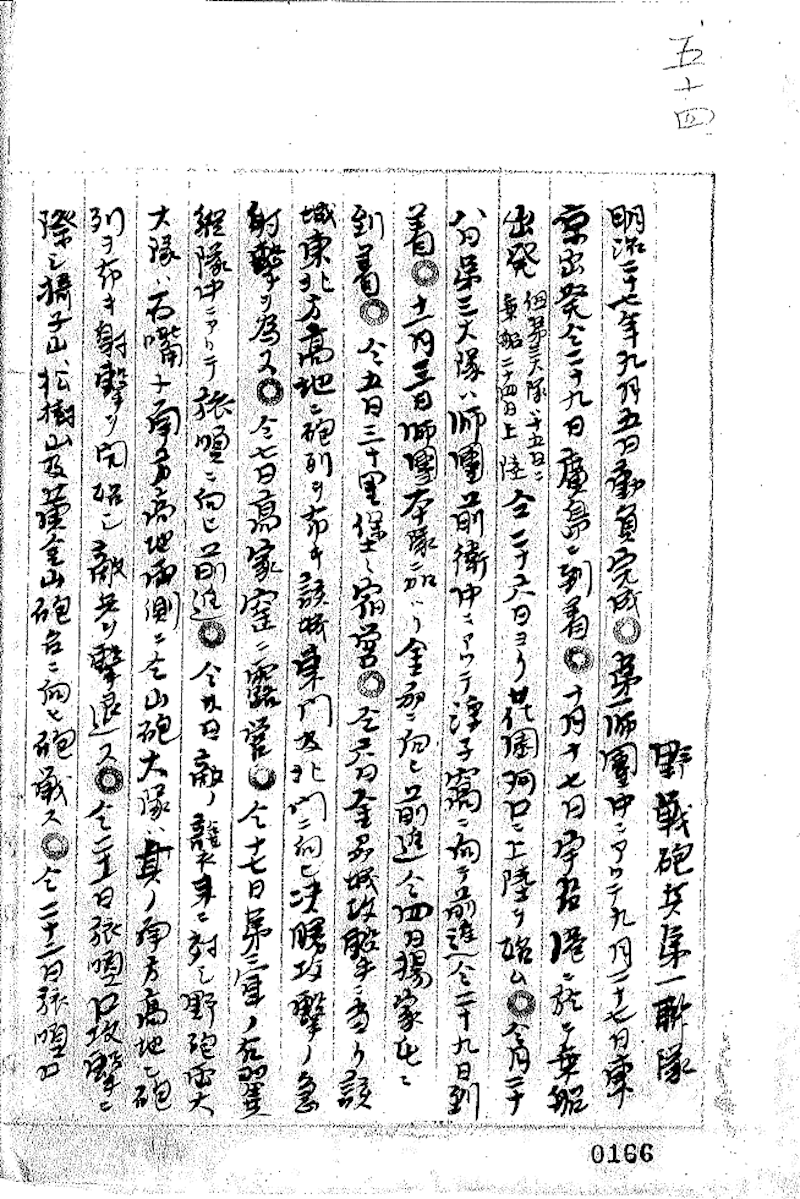 五十四
野戰砲兵第一聯隊
明治二十七年九月五日動員完成◎第一師團中ニアリテ九月二十七日東
京出発仝二十九日廣島ニ到着◎十月十七日宇品港ニ於テ乗船
出発 但第三大隊ハ十五日ニ乗船二十四日上陸 仝二十六日ヨリ花園河口ニ上陸ヲ始ム◎仝月二十
八日第三大隊ハ師團前衛中ニアリテ貔子窩ニ向テ前進仝二十九日到
着◎十一月三日師團本隊ニ加ハリ金州ニ向ヒ前進仝四日揚家屯ニ
到着◎仝五日三十里堡ニ宿営◎仝六日金州城攻擊ニ当リ該
城東北方高地ニ砲列ヲ布キ該城東門及北門ニ向ヒ決勝攻擊ノ急
射擊ヲ為ス◎仝七日高家窑ニ露営◎仝十七日第三軍ノ右翼
縦隊中ニアリテ旅順ニ向ヒ前進◎仝 日敵ノ襲来ニ対シ野砲第
大隊ハ石嘴子南方高地西側ニ仝山砲大隊ハ其ノ南方高地ニ砲
列ヲ布キ射擊ヲ開始シ敵兵ヲ擊退ス◎仝二十一日旅順口攻擊ニ
際シ椅子山、松樹山及黄金山砲台ニ向ヒ砲戦ス◎仝二十二日旅順口
0166